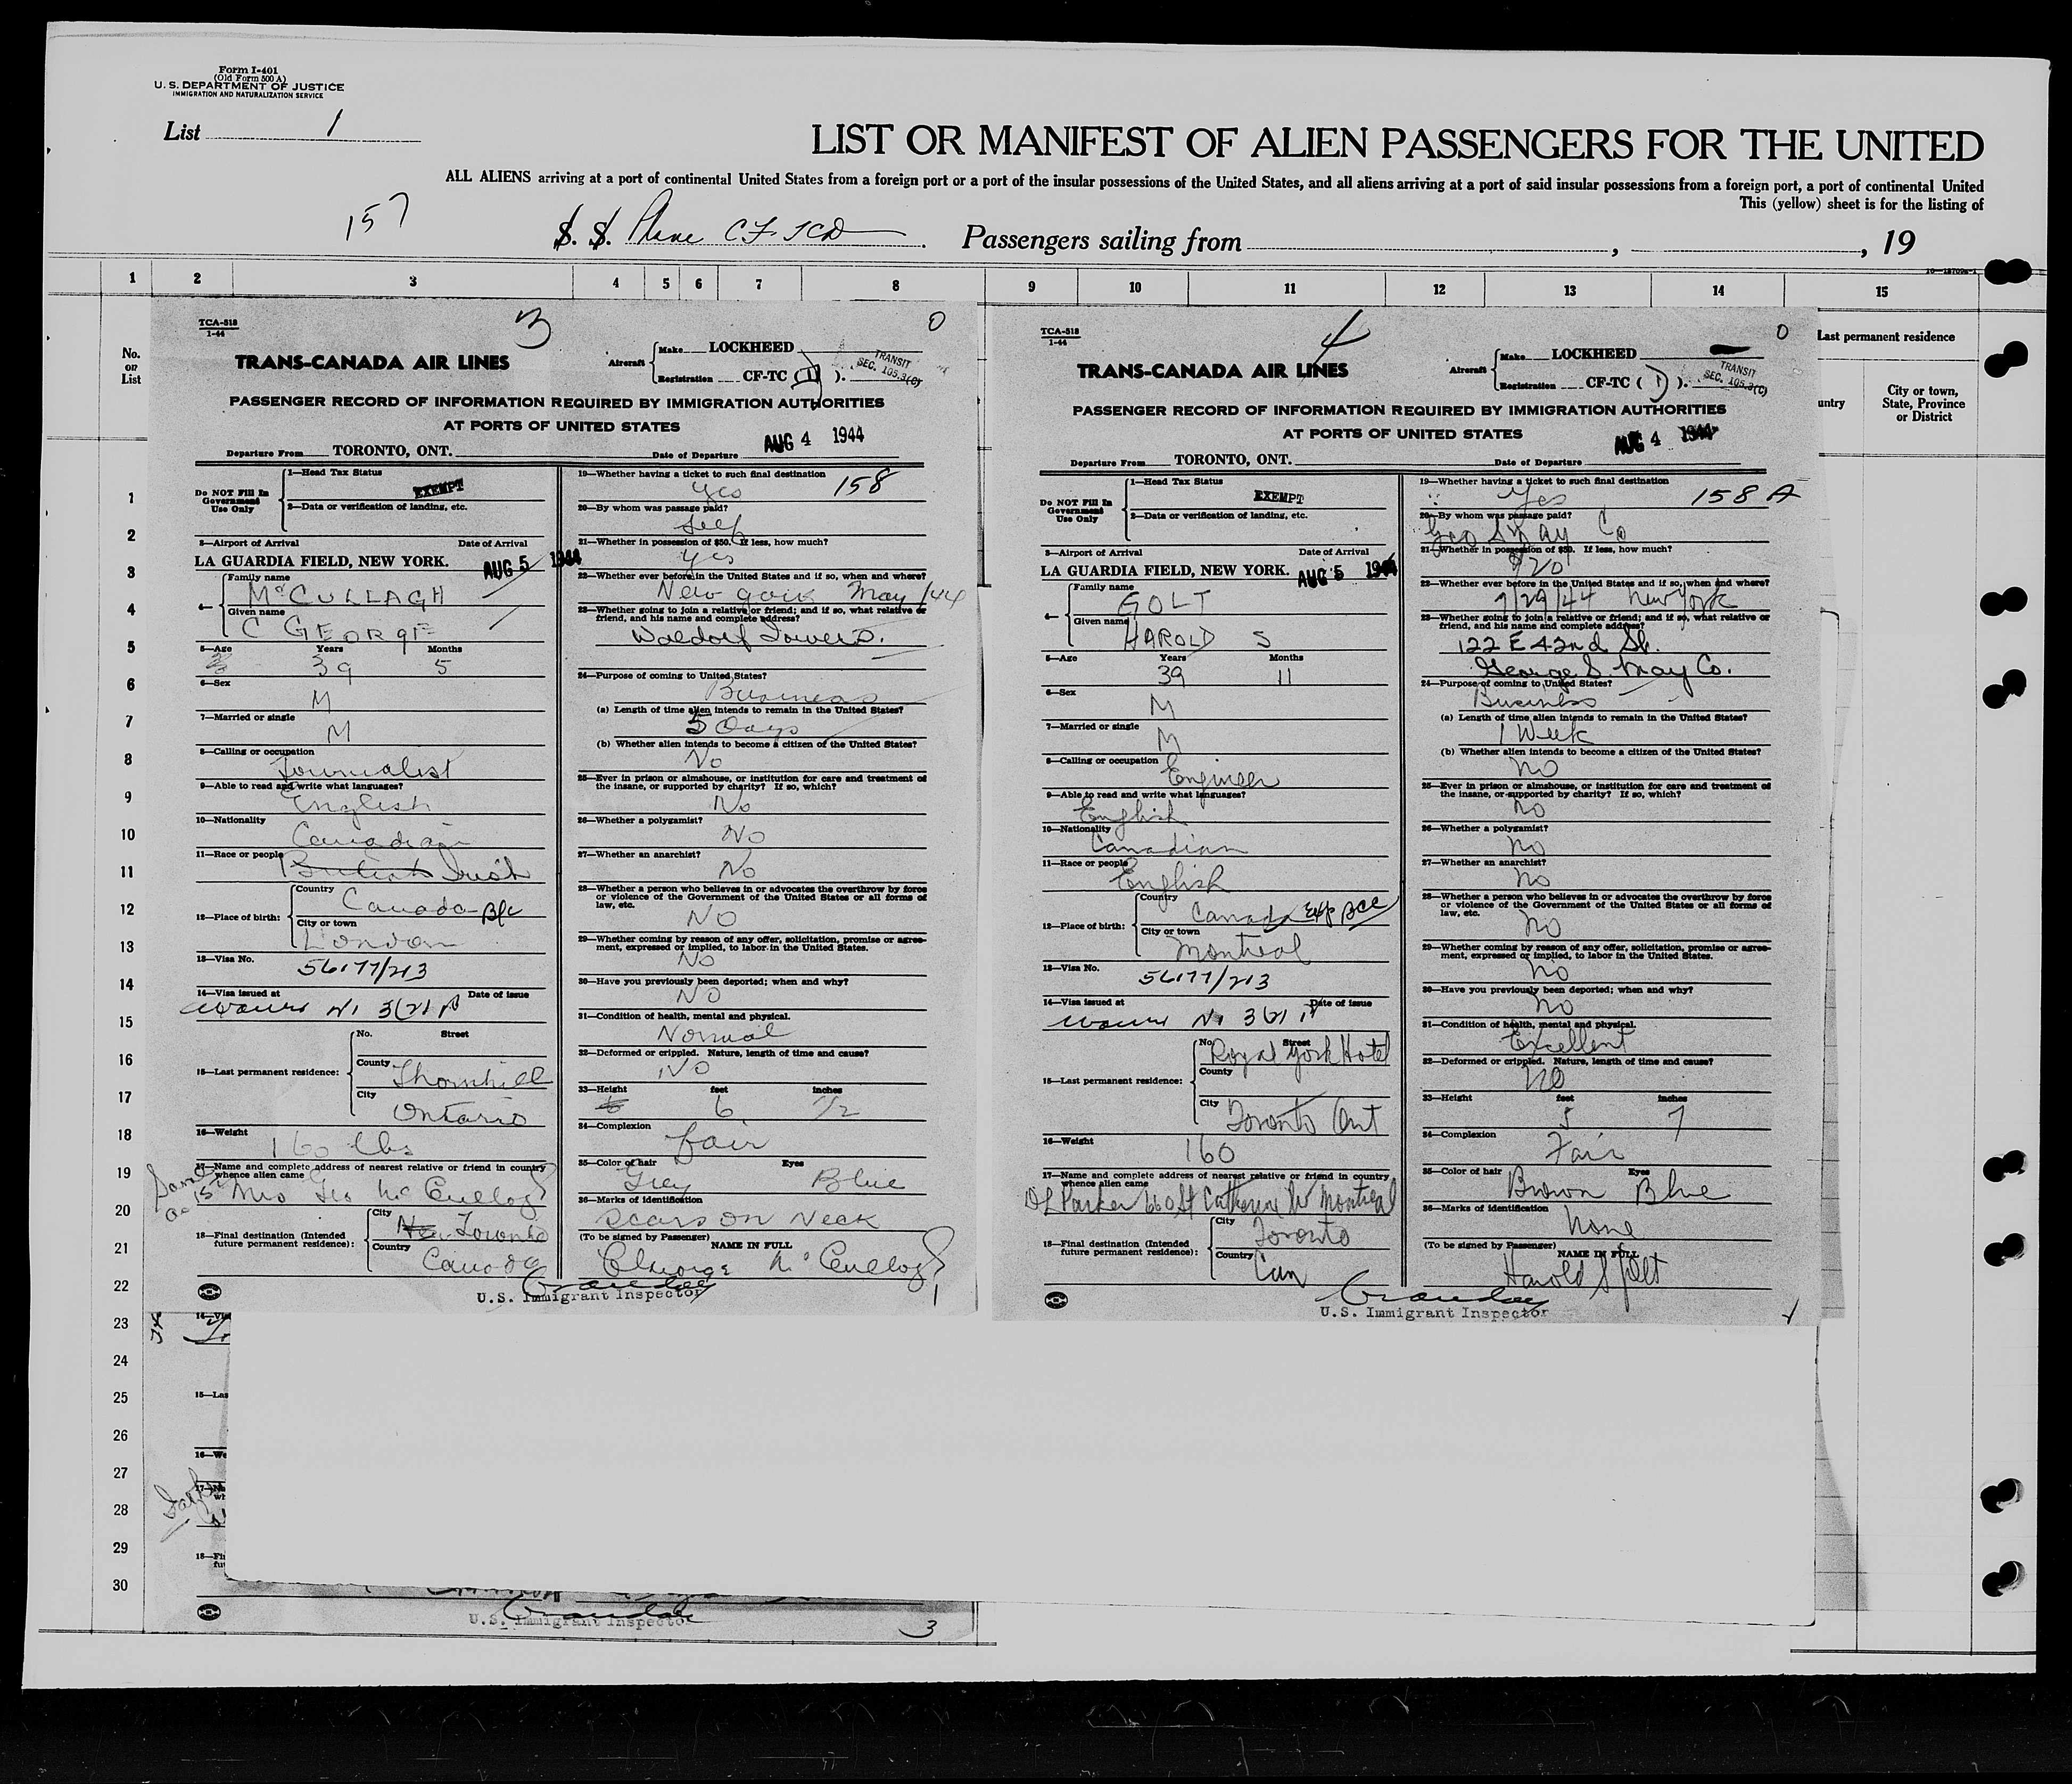 Form I-401
(Old Form 500 A)
U. S. DEPARTMENT OF JUSTICE
IMMIGRATION AND NATURALIZATION SERVICE
List 1
LIST OR MANIFEST OF ALIEN PASSENGERS FOR THE UNITED
ALL ALIENS arriving at a port of continental United States from a foreign port or a port of the insular possessions of the United States, and all aliens arriving at a port of said insular possessions from a foreign port, a port of continental United
This (yellow) sheet is for the listing of
157
S. S. Plane CF TCD Passengers sailing from , , 19
1 2 3 4 5 6 7 8 9 10 11 12 13 14 15
No. on List
Last permanent residence
untry
City or town, State, Province or District
1
2
3
4
5
6
7
8
9
10
11
12
13
14
15
16
17
18
19
20
21
22
23
24
25
26
27
28
29
30
TCA-518
1-44
3
0
TRANS-CANADA AIR LINES
Aircraft Make LOCKHEED
Registration CF-TC (D).
TRANSIT
SEC. 105.3(C)
PASSENGER RECORD OF INFORMATION REQUIRED BY IMMIGRATION AUTHORITIES
AT PORTS OF UNITED STATES
Departure From TORONTO, ONT. Date of Departure AUG 4 1944
Do NOT Fill In Government Use Only
1—Head Tax Status EXEMPT
2—Data or verification of landing, etc.
3—Airport of Arrival Date of Arrival
LA GUARDIA FIELD, NEW YORK. AUG 5 1944
4— Family name McCULLAGH
Given name C GEORGE
5—Age Years 39 Months 5
6—Sex M
7—Married or single M
8—Calling or occupation Journalist
9—Able to read and write what languages? English
10—Nationality Canadian
11—Race or people British Irish
12—Place of birth: Country Canada
City or town London
13—Visa No. 56177/213
14—Visa issued at Date of issue
15—Last permanent residence: No. Street
County Thornhill
City Ontario
16—Weight 160 lbs
17—Name and complete address of nearest relative or friend in country whence alien came
Same as 15 Mrs Geo McCullagh
18—Final destination (Intended future permanent residence): City Toronto
Country Canada
19—Whether having a ticket to such final destination yes 158
20—By whom was passage paid? Self
21—Whether in possession of $50. If less, how much? yes
22—Whether ever before in the United States and if so, when and where?
New York May /44
23—Whether going to join a relative or friend; and if so, what relative or friend, and his name and complete address?
Waldorf Towers.
24—Purpose of coming to United States? Business
(a) Length of time alien intends to remain in the United States? 5 Days
(b) Whether alien intends to become a citizen of the United States? No
25—Ever in prison or almshouse, or institution for care and treatment of the insane, or supported by charity? If so, which? No
26—Whether a polygamist? No
27—Whether an anarchist? No
28—Whether a person who believes in or advocates the overthrow by force or violence of the Government of the United States or all forms of law, etc. NO
29—Whether coming by reason of any offer, solicitation, promise or agreement, expressed or implied, to labor in the United States. NO
30—Have you previously been deported; when and why? NO
31—Condition of health, mental and physical. Normal
32—Deformed or crippled. Nature, length of time and cause? NO
33—Height feet 6 inches 1/2
34—Complexion fair
35—Color of hair Grey Eyes Blue
36—Marks of identification Scars on Neck
(To be signed by Passenger) NAME IN FULL
C George McCullagh
U.S. Immigrant Inspector
1
TCA-518
1-44
4
0
TRANS-CANADA AIR LINES
Aircraft Make LOCKHEED
Registration CF-TC (D).
TRANSIT
SEC. 105.3(C)
PASSENGER RECORD OF INFORMATION REQUIRED BY IMMIGRATION AUTHORITIES
AT PORTS OF UNITED STATES
Departure From TORONTO, ONT. Date of Departure AUG 4 1944
Do NOT Fill In Government Use Only
1—Head Tax Status EXEMPT
2—Data or verification of landing, etc.
3—Airport of Arrival Date of Arrival
LA GUARDIA FIELD, NEW YORK. AUG 5 1944
4— Family name GOLT
Given name HAROLD S
5—Age Years 39 Months 11
6—Sex M
7—Married or single M
8—Calling or occupation Engineer
9—Able to read and write what languages? English
10—Nationality Canadian
11—Race or people English
12—Place of birth: Country Canada
City or town Montreal
13—Visa No. 56177/213
14—Visa issued at Date of issue
15—Last permanent residence: No. Street Royal York Hotel
County
City Toronto Ont
16—Weight 160
17—Name and complete address of nearest relative or friend in country whence alien came
Parker 660 St Catherine W Montreal
18—Final destination (Intended future permanent residence): City Toronto
Country Can
19—Whether having a ticket to such final destination Yes 158 A
20—By whom was passage paid? Geo S May Co
21—Whether in possession of $50. If less, how much? $20
22—Whether ever before in the United States and if so, when and where?
7/29/44 New York
23—Whether going to join a relative or friend; and if so, what relative or friend, and his name and complete address?
122 E 42nd St.
George S. May Co.
24—Purpose of coming to United States? Business
(a) Length of time alien intends to remain in the United States? 1 Week
(b) Whether alien intends to become a citizen of the United States? no
25—Ever in prison or almshouse, or institution for care and treatment of the insane, or supported by charity? If so, which? no
26—Whether a polygamist? no
27—Whether an anarchist? no
28—Whether a person who believes in or advocates the overthrow by force or violence of the Government of the United States or all forms of law, etc. no
29—Whether coming by reason of any offer, solicitation, promise or agreement, expressed or implied, to labor in the United States. no
30—Have you previously been deported; when and why? no
31—Condition of health, mental and physical. Excellent
32—Deformed or crippled. Nature, length of time and cause? no
33—Height feet 5 inches 7
34—Complexion Fair
35—Color of hair Brown Eyes Blue
36—Marks of identification None
(To be signed by Passenger) NAME IN FULL
Harold S Golt
U.S. Immigrant Inspector
15—Las
U.S. Immigrant Inspector
3